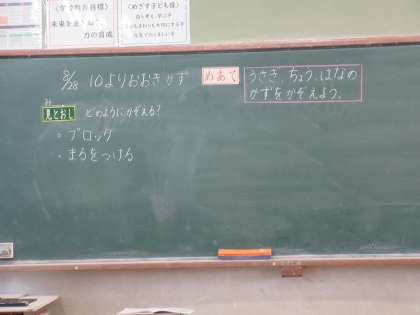 〈学校教育目標〉
未来を
力の育成
〈めざす子ども像〉
8/28 10よりおおきいかず
めあて
うさぎ、ちょう、はなの
かずをかぞえよう。
み
見とおし どのようにかぞえる?
・ブロック
・まるをつける